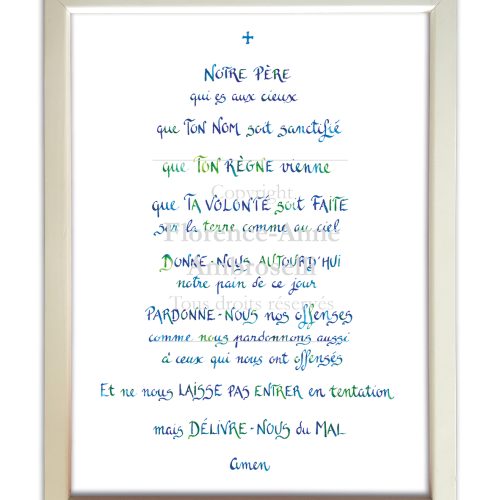 NOTRE PÈRE
qui es aux cieux
que TON NOM soit sanctifié
que TON RÈGNE vienne
Copyright
que TA VOLONTÉ soit FAITE
sur la terre comme au ciel
Florence-Anne
DONNE-NOUS AUJOURD'HUI
Ambroselli
notre pain de ce jour
Tous droits réservés
PARDONNE-NOUS nos offenses
comme nous pardonnons aussi
à ceux qui nous ont offensés
Et ne nous LAISSE PAS ENTRER en tentation
mais DÉLIVRE-NOUS du MAL
amen